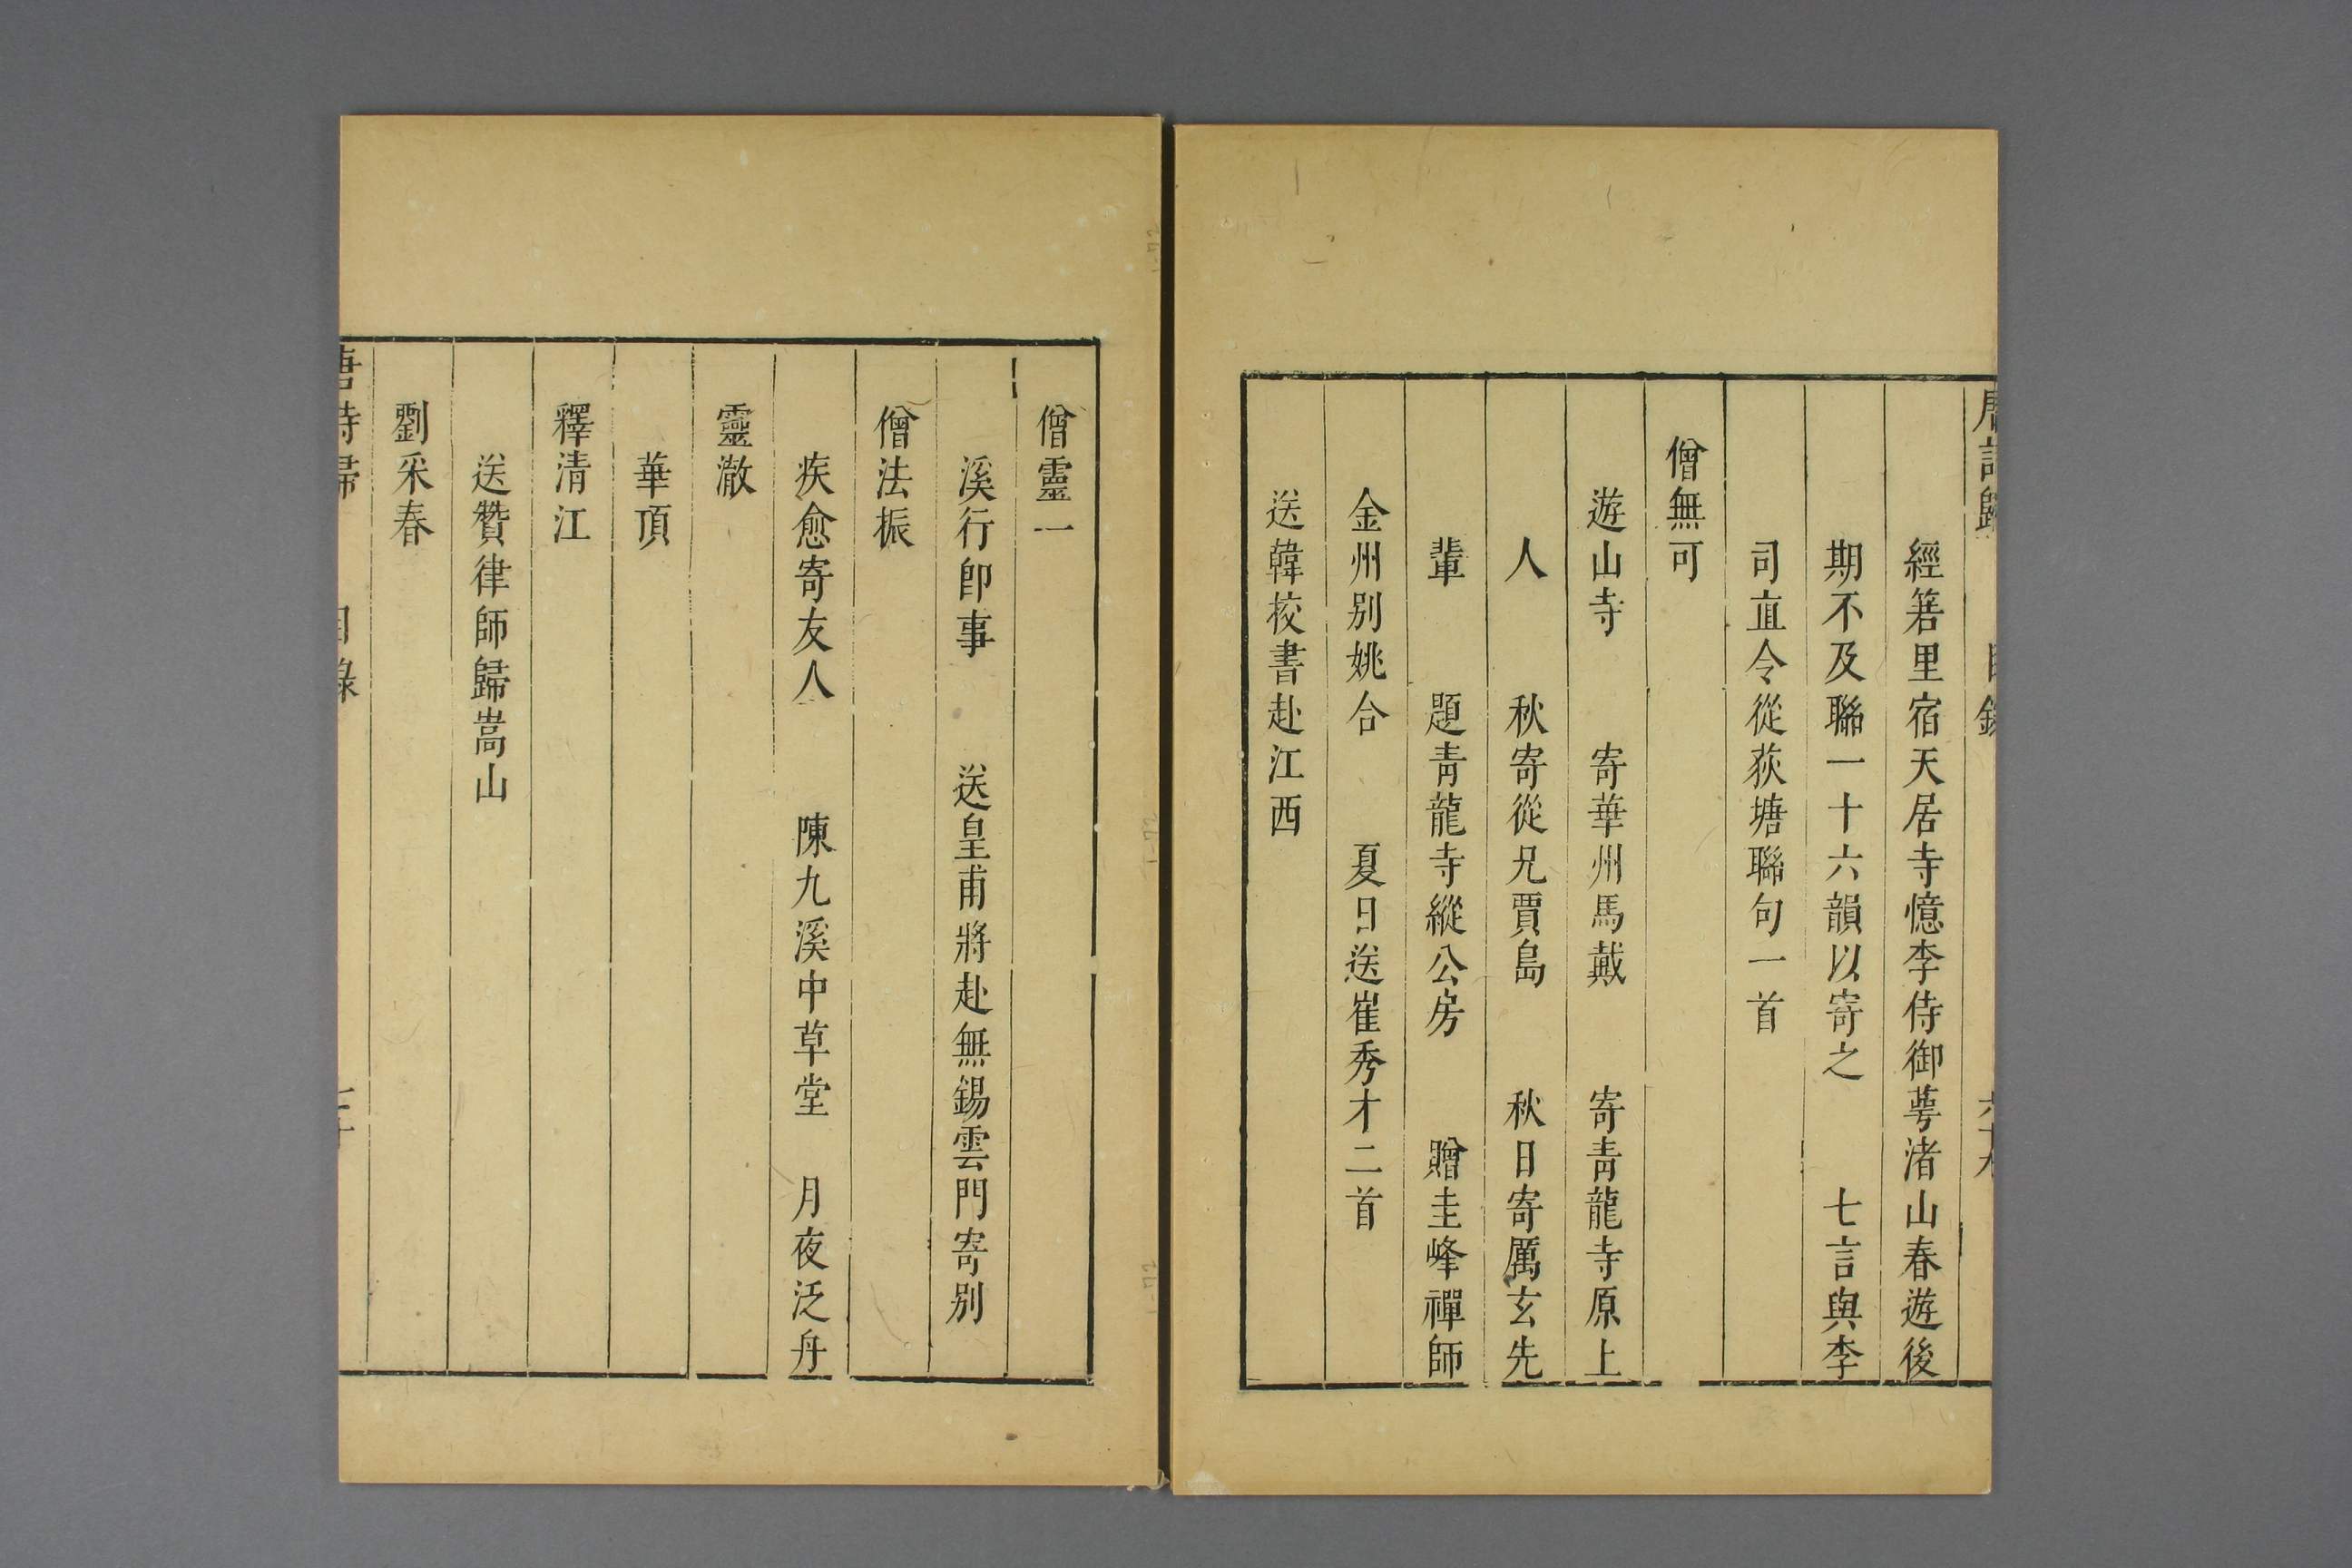 經箬里宿天居寺憶李侍御萼渚山春遊後
期不及聯一十六韻以寄之　七言與李
司直令從荻塘聯句一首
僧無可
遊山寺　寄華州馬戴　寄青龍寺原上
人　秋寄從兄賈島　秋日寄厲玄先
輩　題青龍寺縱公房　贈圭峰禪師
金州別姚合　夏日送崔秀才二首
送韓校書赴江西
僧靈一
溪行卽事　送皇甫將赴無錫雲門寄別
僧法振
疾愈寄友人　陳九溪中草堂　月夜泛舟
靈澈
華頂
釋清江
送贊律師歸嵩山
劉采春
唐詩歸　目錄